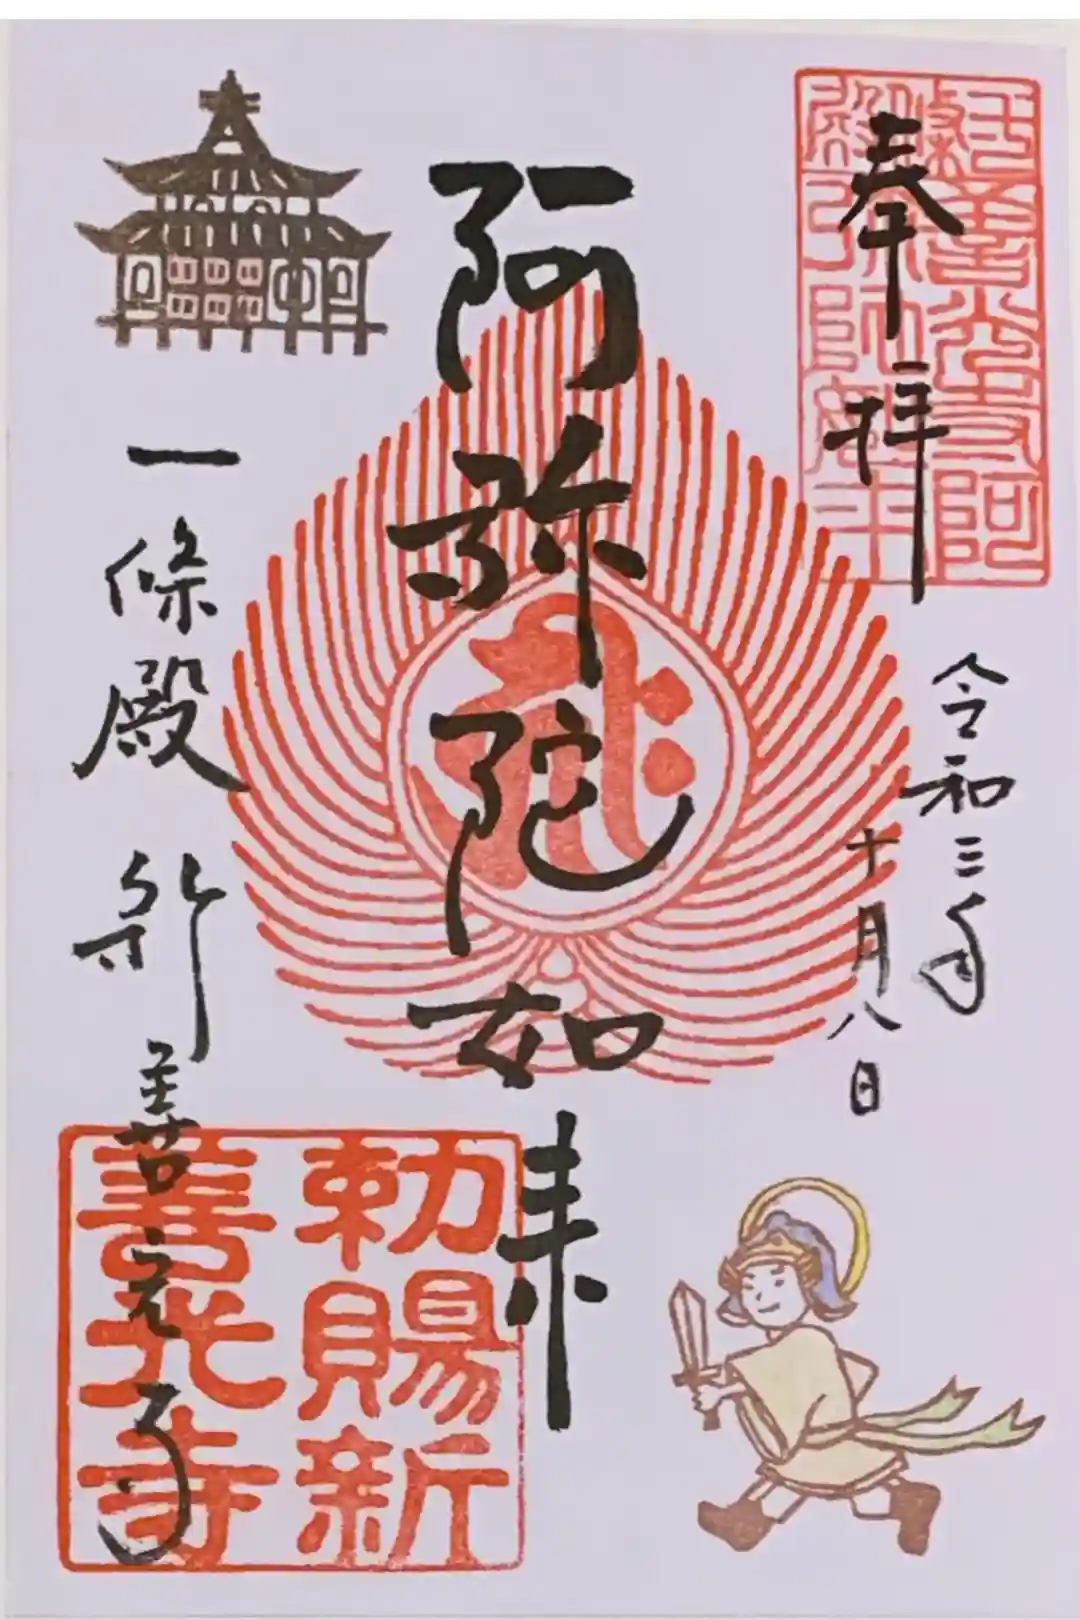 奉拝
令和三年
十月八日
阿弥陀如来
一條殿 新善光寺
勅賜新
善光寺